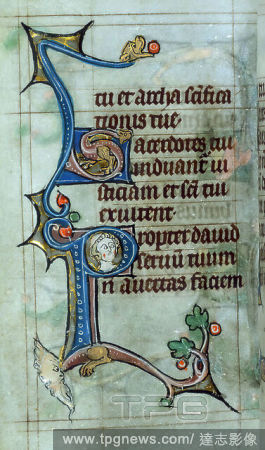 tu et archa sc̄ifica
tionis tue.
Sacerdotes tui
induant᷑ iu
sticiam et sc̄i tui
exultent.
Propter dauid
seruū tuum
n̄ auertas faciem
TPG
www.tpgnews.com / 達志影像